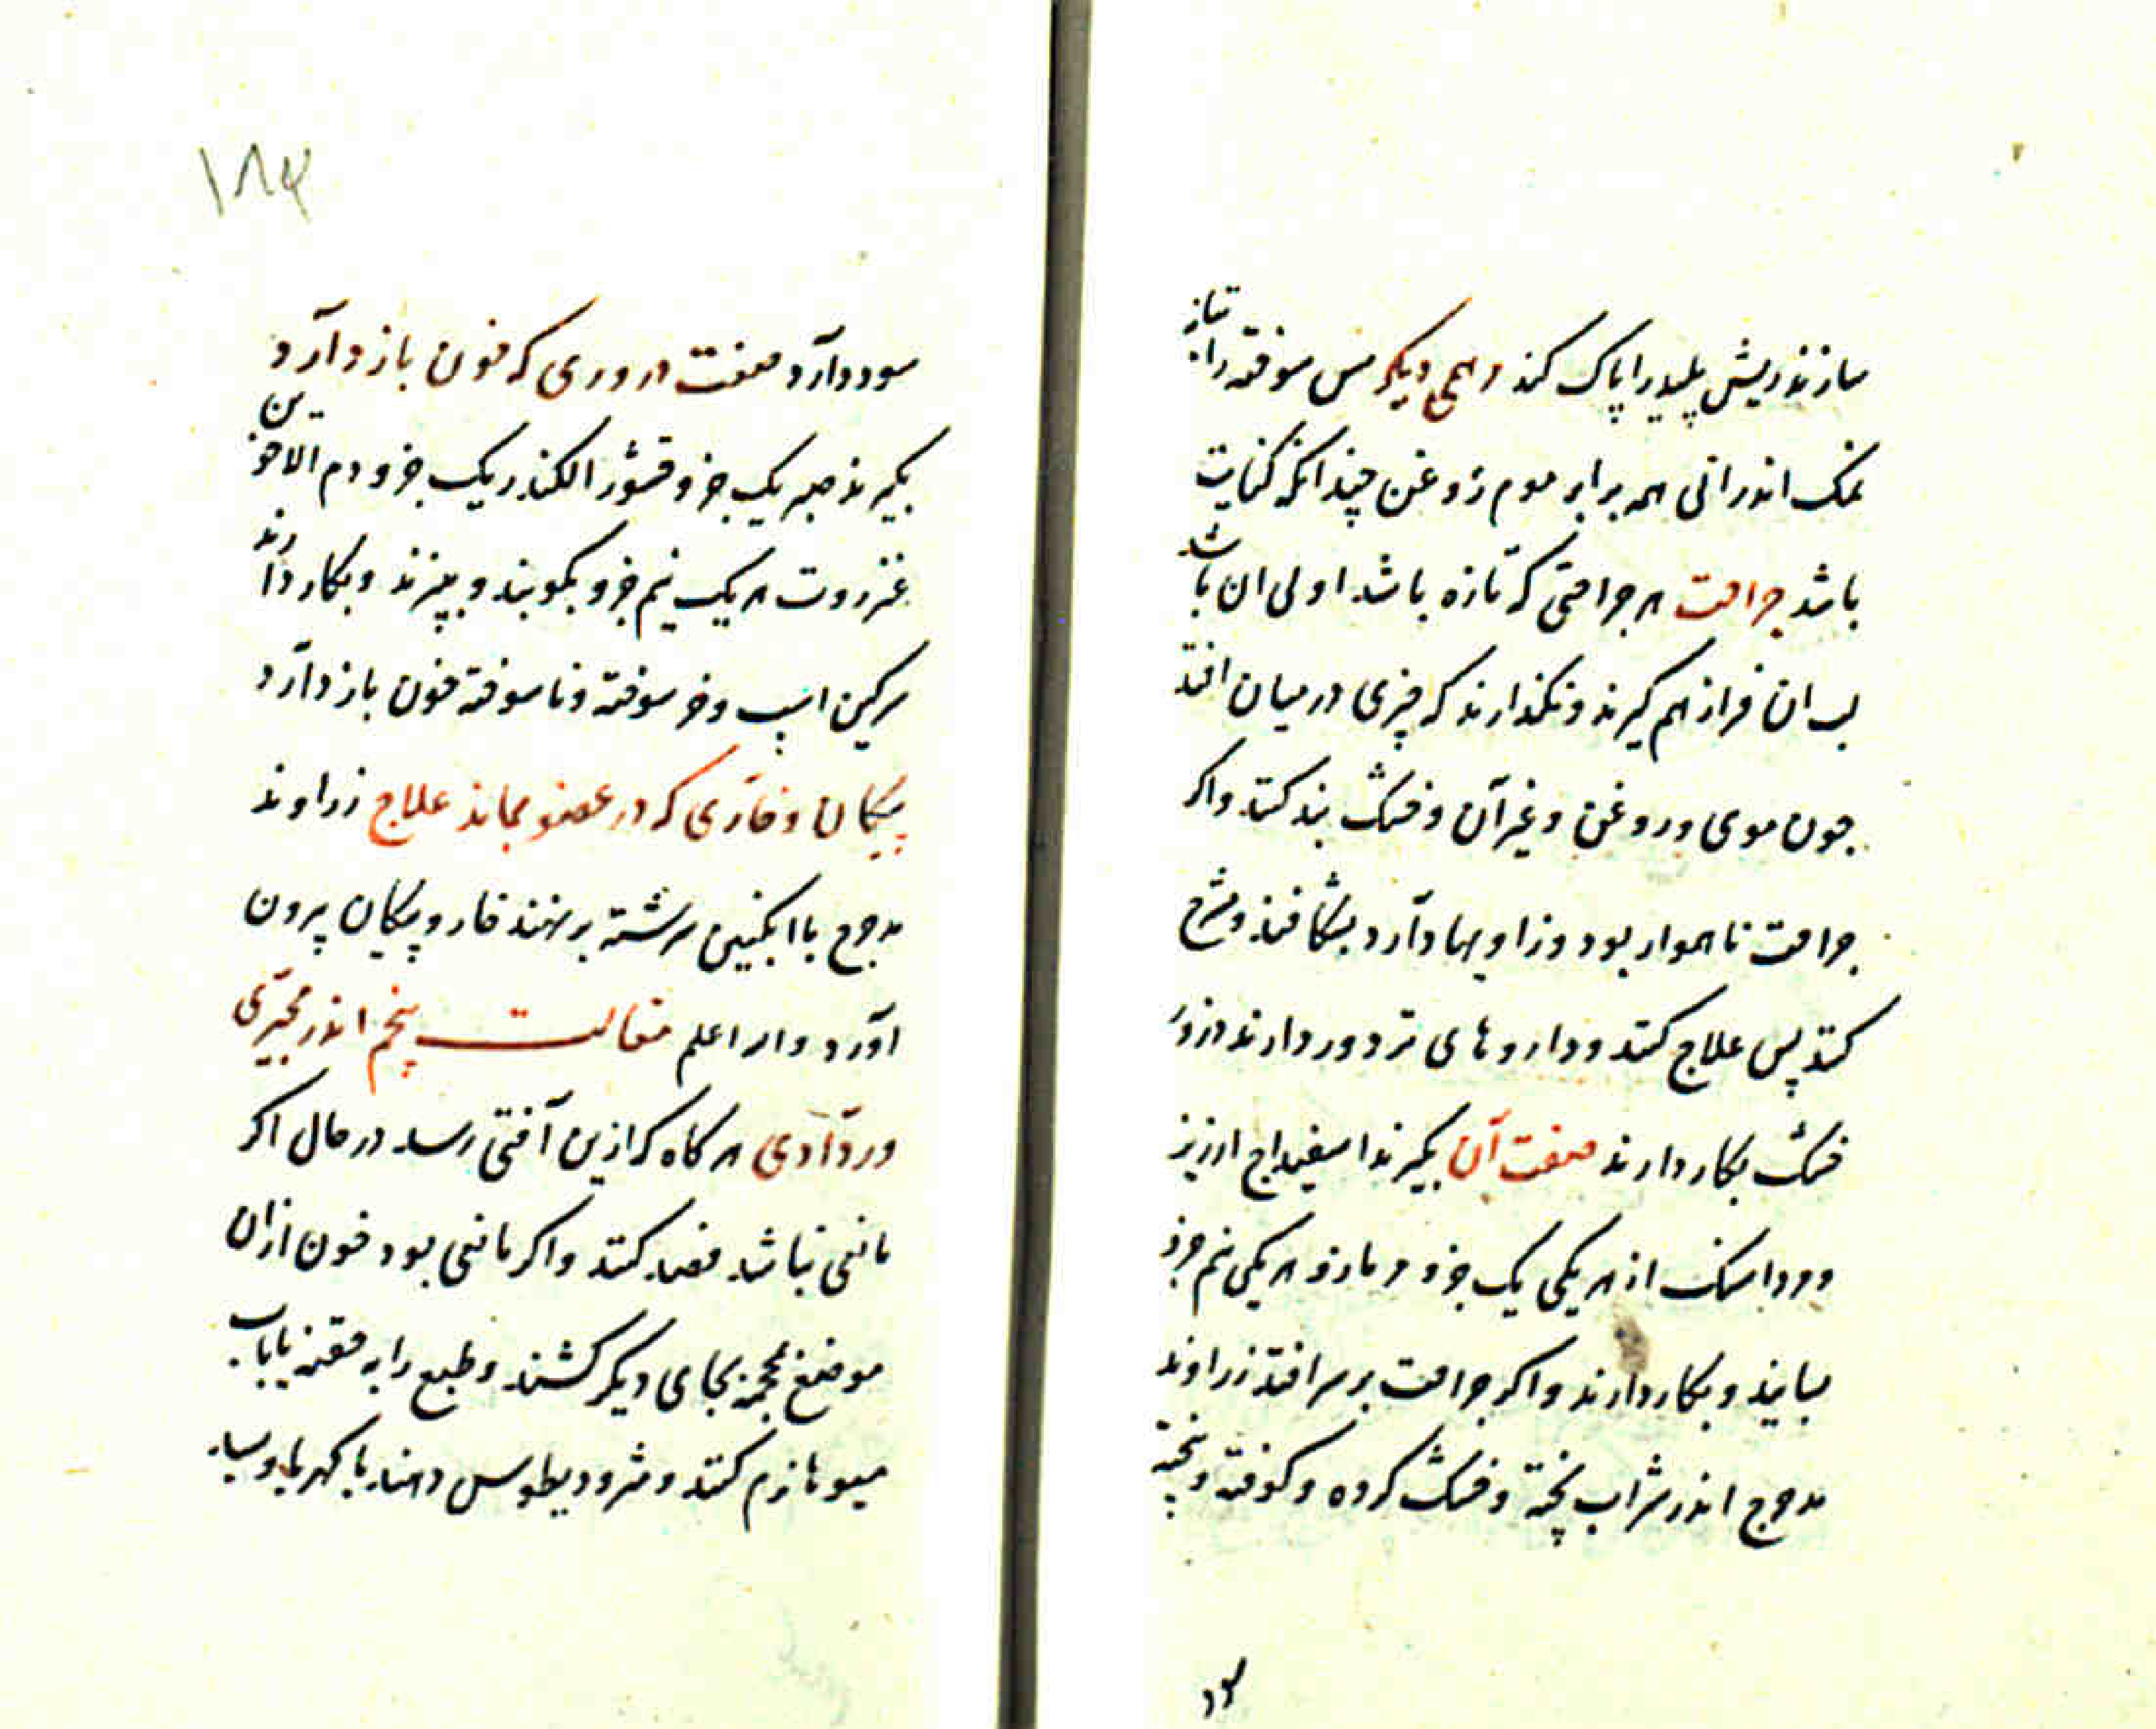 سازند ریش پلید را پاک کند مرهمی دیکر مس سوخته راتیانج
نمک اندرانی همه برابر موم روغن چندانکه کفایت
باشد جراحت هر جراحتی که تازه باشد اولی ان باشد
لب ان فراز هم کیرند و نکذارند که چیزی در میان افتد
جون موی و روغن و غیر آن و خشک بند کنند واکر
جراحت ناهموار بود و زاویها دارد بشکافند و شرح
کنند پس علاج کنند و داروهای تر دور دارند
خشک بکار دارند صفت آن بکیرند اسفیداج ارزیز
ومرداسنک از هر یکی یک جزو مر مازو هر یکی نیم جزو
بسایند و بکار دارند واکر جراحت بر سر افتد زراوند
مدحرج اندر شراب پخته و خشک کرده و کوفته و پخته
۱۸۴
سود دارد صفت دروری که خون باز دارد
بکیرند صبر یک جزو قشور الکندر یک جزو دم الاخوین
عنزروت هر یک نیم جزو بکوبند و بپزند و بکار دارند
سرکین اسپ و خر سوخته و ناسوخته خون باز دارد
پیکان و خاری که در عضو بماند علاج زراوند
مدحرج با انکبین سرشته برنهند خار و پیکان بیرون
اورد والله اعلم مقالت پنجم اندر مجبری
ورد آدمی هر کاه که ازین آفتی رسد در حال اکر
مانعی نباشد فصد کنند واکر مانعی بود خون ازان
موضع بمحجمه بجای دیکر کشند و طبع را به حقنه یا باب
میوها نرم کنند و مثرودیطوس دهند با کهربا